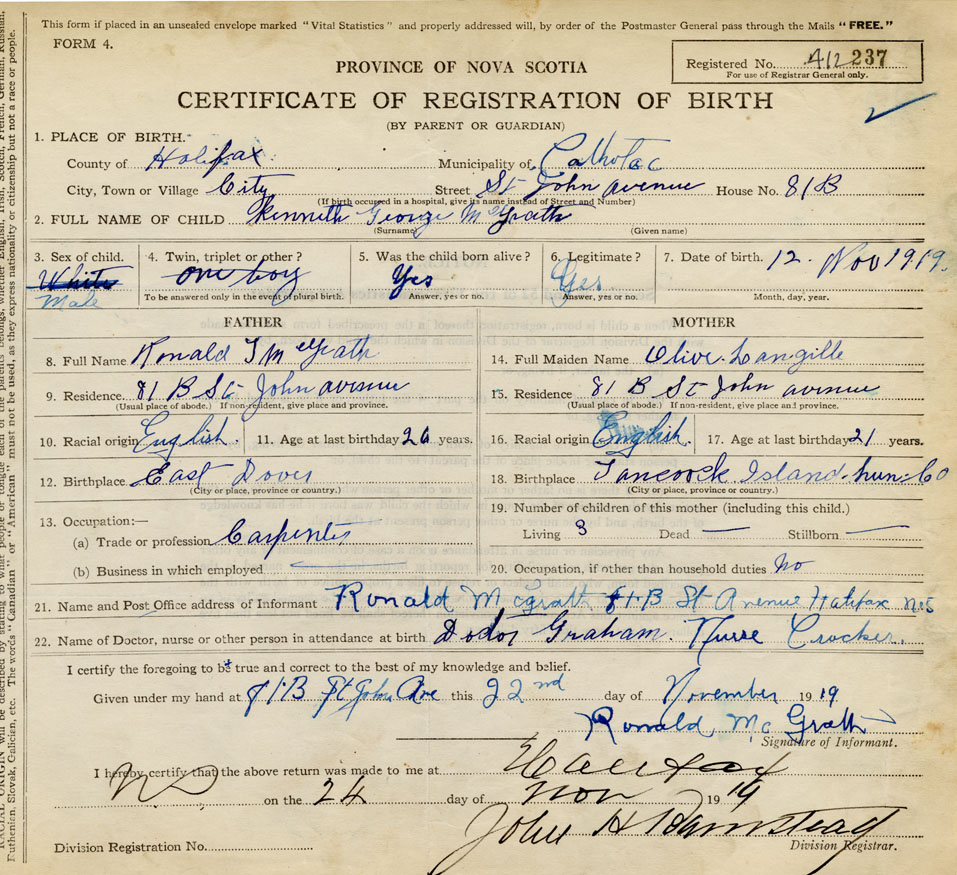 This form if placed in an unsealed envelope marked "Vital Statistics" and properly addressed will, by order of the Postmaster General pass through the Mails "FREE."
FORM 4.
Registered No. 412 237
For use of Registrar General only.
PROVINCE OF NOVA SCOTIA
CERTIFICATE OF REGISTRATION OF BIRTH
(BY PARENT OR GUARDIAN)
1. PLACE OF BIRTH.
County of Halifax Municipality of
City, Town or Village City Street St John avenue House No. 81B
(If birth occured in a hospital, give its name instead of Street and Number)
2. FULL NAME OF CHILD Kenneth George McGrath
(Surname) (Given name)
3. Sex of child. White Male 4. Twin, triplet or other? one boy 5. Was the child born alive? Yes 6. Legitimate? Yes 7. Date of birth. 12. Nov 1919.
To be answered only in the event of plural birth. Answer, yes or no. Answer, yes or no. Month, day, year.
FATHER MOTHER
8. Full Name Ronald McGrath 14. Full Maiden Name Olive Langille
9. Residence. 81 B St John avenue 15. Residence 81 B St John avenue
(Usual place of abode.) If non-resident, give place and province. (Usual place of abode.) If non-resident, give place and province.
10. Racial origin English. 11. Age at last birthday 26 years. 16. Racial origin English. 17. Age at last birthday 21 years.
12. Birthplace. East Dover 18. Birthplace Tancook Island. Lun. Co
(City or place, province or country.) (City or place, province or country.)
13. Occupation:— 19. Number of children of this mother (including this child.)
(a) Trade or profession Carpenter Living 3 Dead — Stillborn —
(b) Business in which employed — 20. Occupation, if other than household duties No
21. Name and Post Office address of Informant Ronald Mcgrath 81-B St Avenue Halifax N.S
22. Name of Doctor, nurse or other person in attendance at birth Doctor Graham. Nurse Crocker.
I certify the foregoing to be true and correct to the best of my knowledge and belief.
Given under my hand at 81B St John Ave this 22nd day of November 1919
Ronald McGrath
Signature of Informant.
I hereby certify that the above return was made to me at Halifax
NS on the 24 day of Nov 1919
John H Barnstead
Division Registration No. Division Registrar.
RACIAL ORIGIN will be described by stating to what people or tongue each of the parents belongs, whether English, Irish, Scotch, French, German, Russian,
Ruthenian, Slovak, Galician, etc. The words "Canadian" or "American" must not be used, as they express nationality or citizenship but not a race or people.